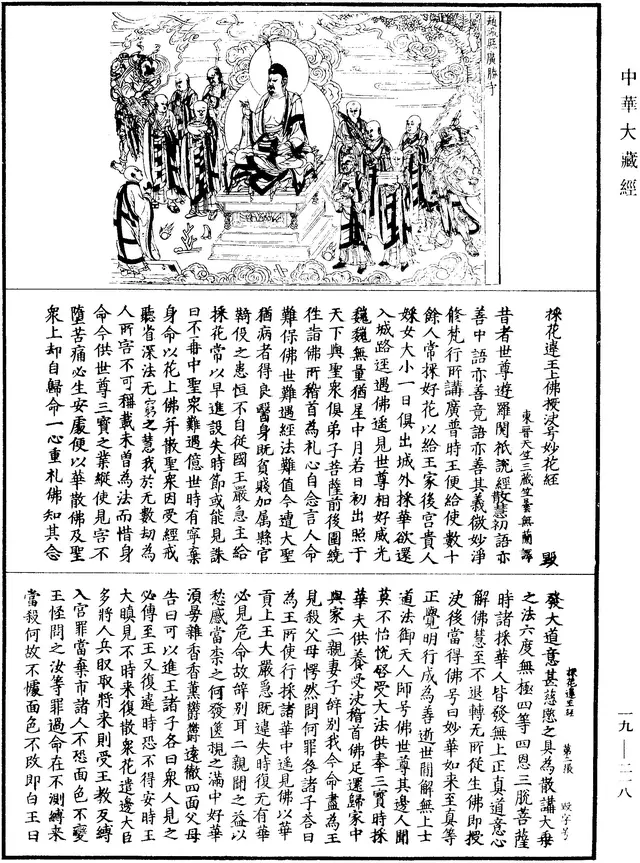 中華大藏經
趙城縣廣勝寺
採花違王上佛授決号妙花經 毀
東晉天竺三藏竺曇無蘭譯
昔者世尊遊羅閱祇說經散慧初語亦
善中語亦善竟語亦善其義微妙淨
修梵行所講廣普時王便給使數十
餘人常採好花以給王家後宮貴人
婇女大小一日俱出城外採華欲還
入城路逕遇佛遥見世尊相好威光
巍巍無量猶星中月若日初出照于
天下與聖衆俱弟子菩薩前後圍繞
往詣佛所稽首為礼心自念言人命
難保佛世難遇經法難值今遭大聖
猶病者得良醫身既貧賤加屬縣官
羇役之患恒不自從國王嚴急主給
採花常以早進設失時節或能見誅
曰不番中聖衆難遇億世時有寧棄
身命以花上佛并散聖衆因受經戒
聽省深法无窮之慧我於无數劫為
人所害不可稱載未曾為法而惜身
命今供世尊三寶之業縱使見害不
墮苦痛必生安處便以華散佛及聖
衆上却自歸命一心重礼佛知其念
發大道意甚慈愍之具為散講大乗
之法六度無極四等四恩三脫菩薩
時諸採華人皆發無上正真道意心
解佛慧至不退轉无所從生佛即授
決後當得佛号曰妙華如來至真等
正覺明行成為善逝世間解無上士
道法御天人師号佛世尊其邊人聞
莫不怡悅啓受大法供奉三寶時採
華夫供養受決稽首佛足還歸家中
與家二親妻子辤別我今命盡為王
見殺父母愕然問何罪咎諸子荅曰
為王所使行採諸華中遥見佛以華
貢上王大嚴急既違失時復无有華
必見危命故辤別耳二親聞之益以
愁慼當柰之何發篋視之滿中好華
須曼雜香香薰欝欝遠徹四面父母
告曰可以進王諸子各曰衆人見之
必傳至王又復違時恐不得安時王
大瞋見不時來復散衆花遣邊大臣
多將人兵収取將來則受王教反縛
入宮罪當棄市諸人不恐面色不變
王怪問之汝等罪過命在不測縛來
當殺何故不懅面色不改即白王曰
採花違王經 第二張 毀字号
一九—二一八